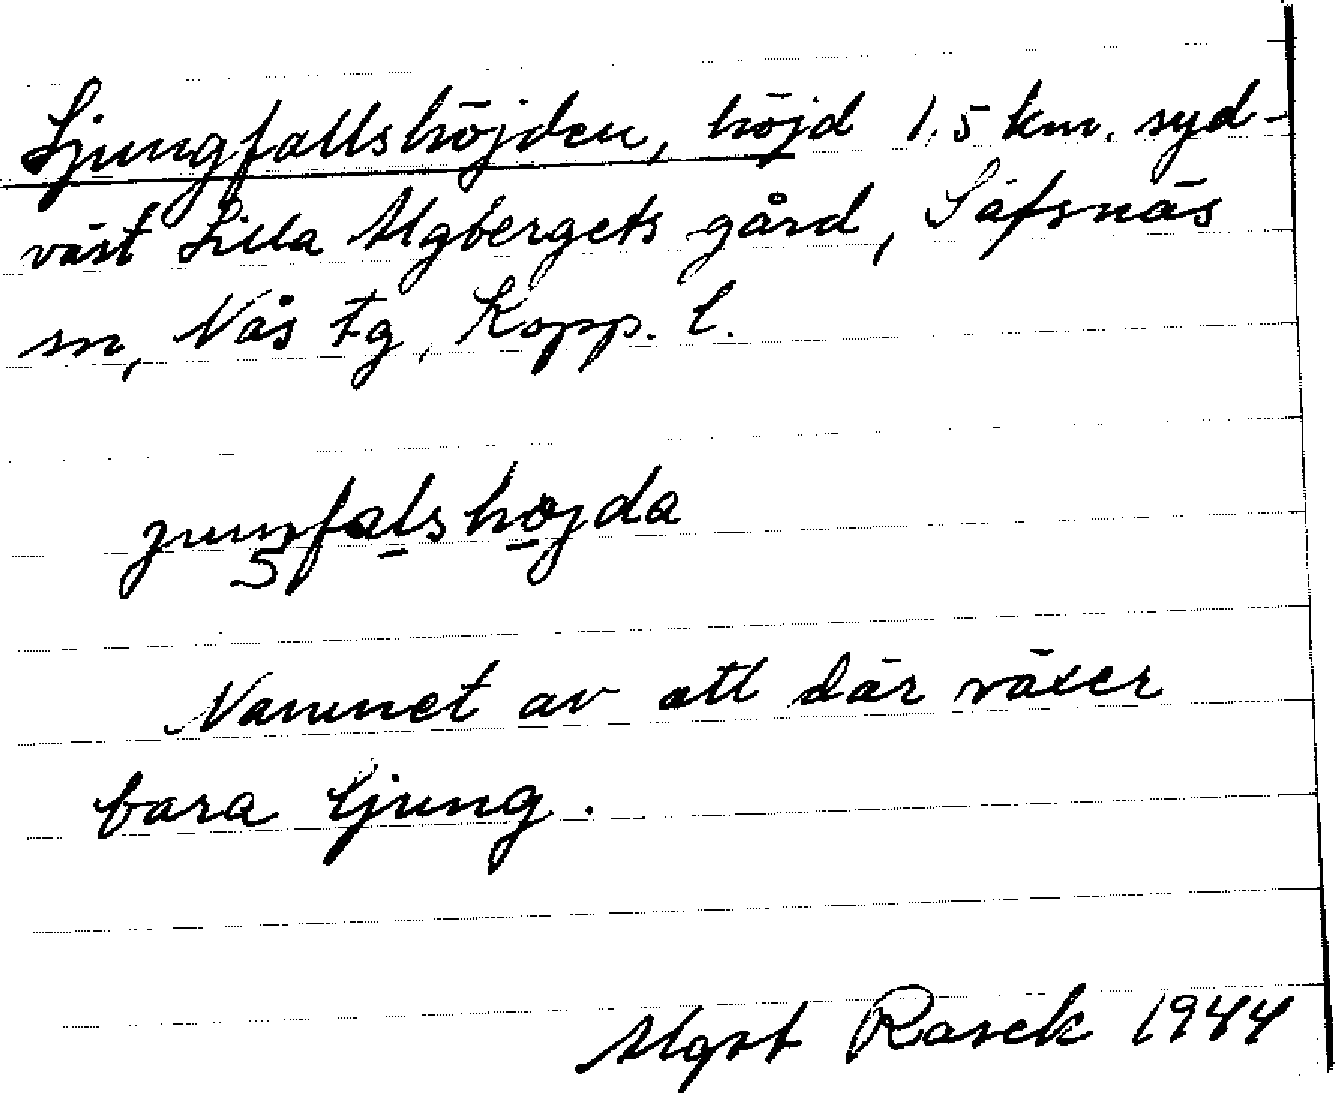 Ljungfallshöjden, höjd 1,5 km. syd-
väst Lilla Älgbergets gård, Säfsnäs
sn, Nås tg, Kopp. l.
Namnet av att där växer
bara ljung.
Algot Rasck 1944